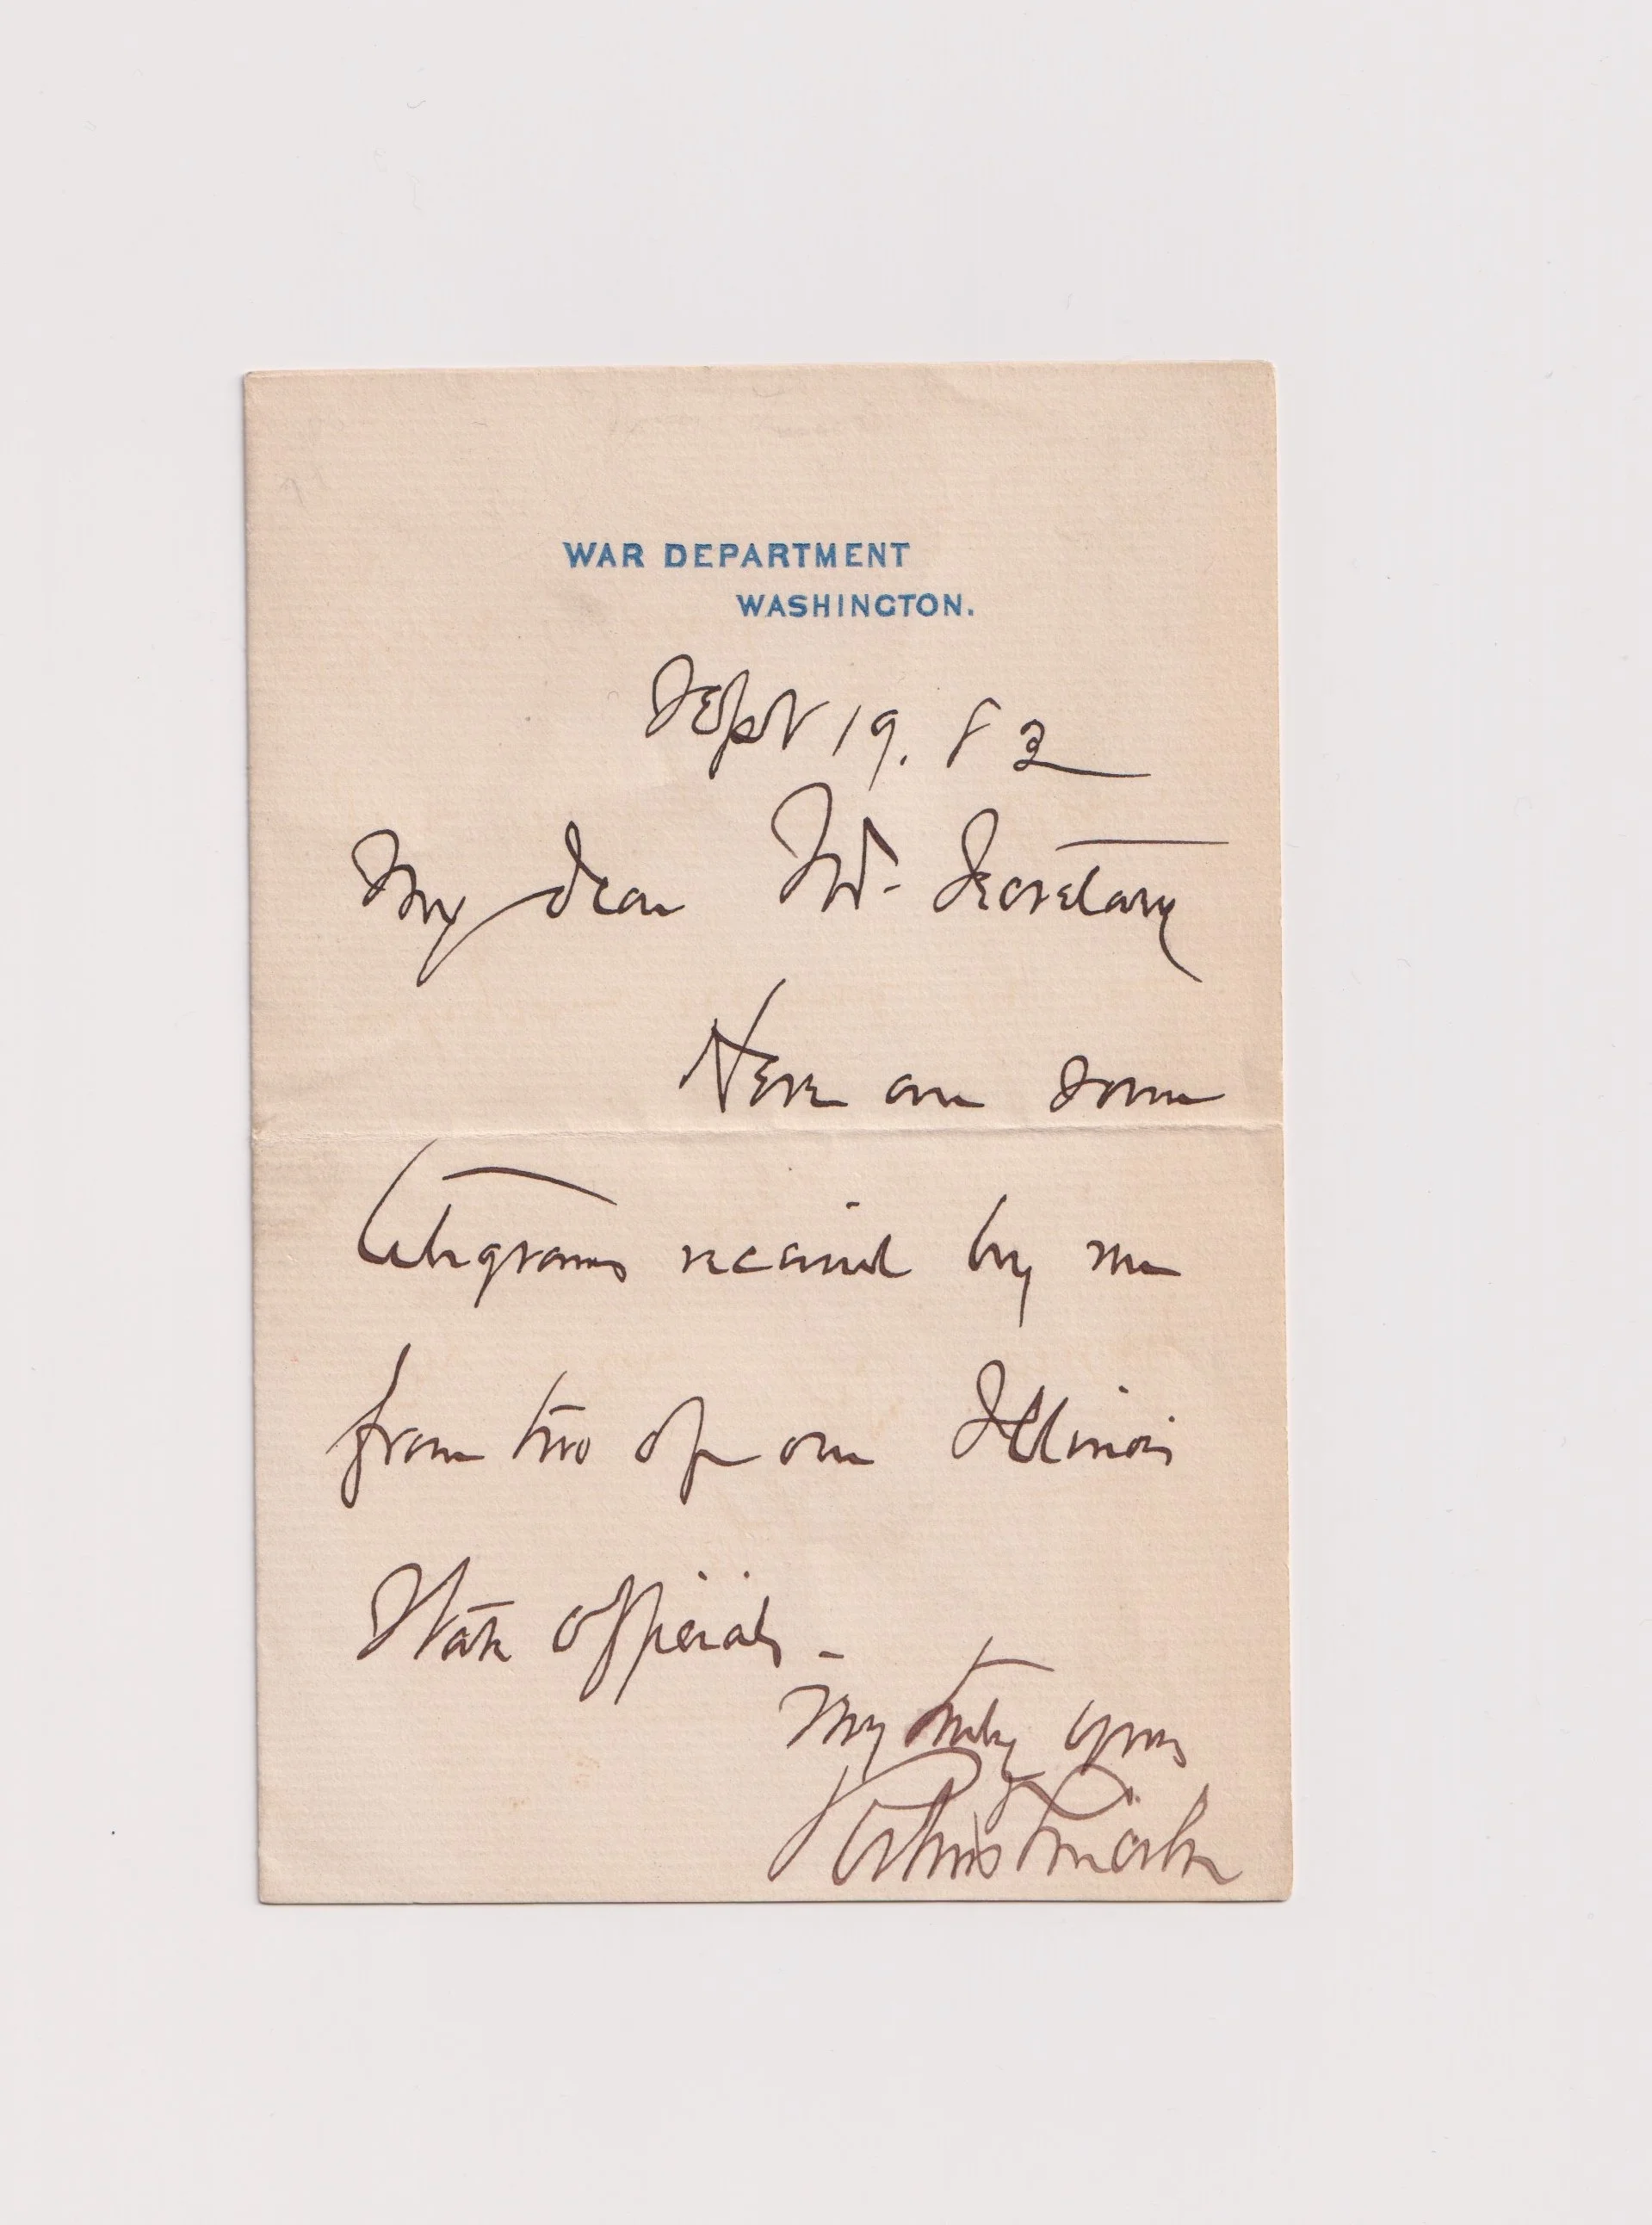 WAR DEPARTMENT
WASHINGTON.
Sept 19. 82
My dear Mr. Secretary
Here are some
telegrams received by me
from two of our Illinois
State officials -
Very truly yours
Robert Lincoln